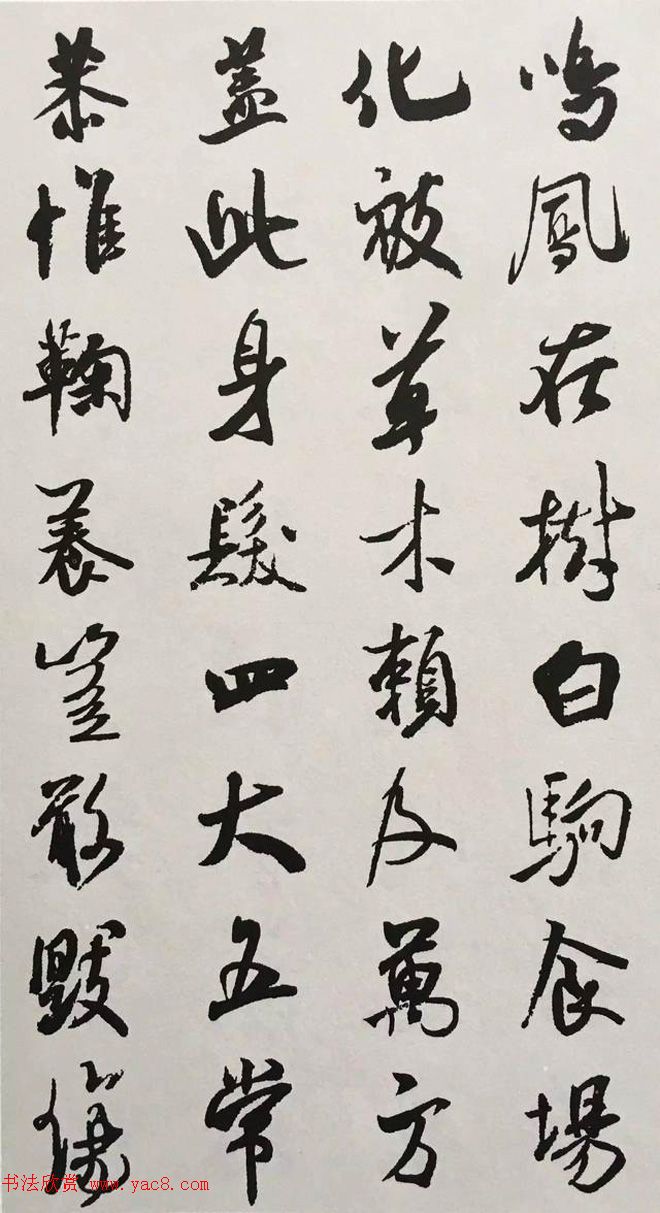 鳴鳳在樹白駒食場
化被草木賴及萬方
蓋此身髮四大五常
恭惟鞠養豈敢毀傷
书法欣赏 www.yac8.com